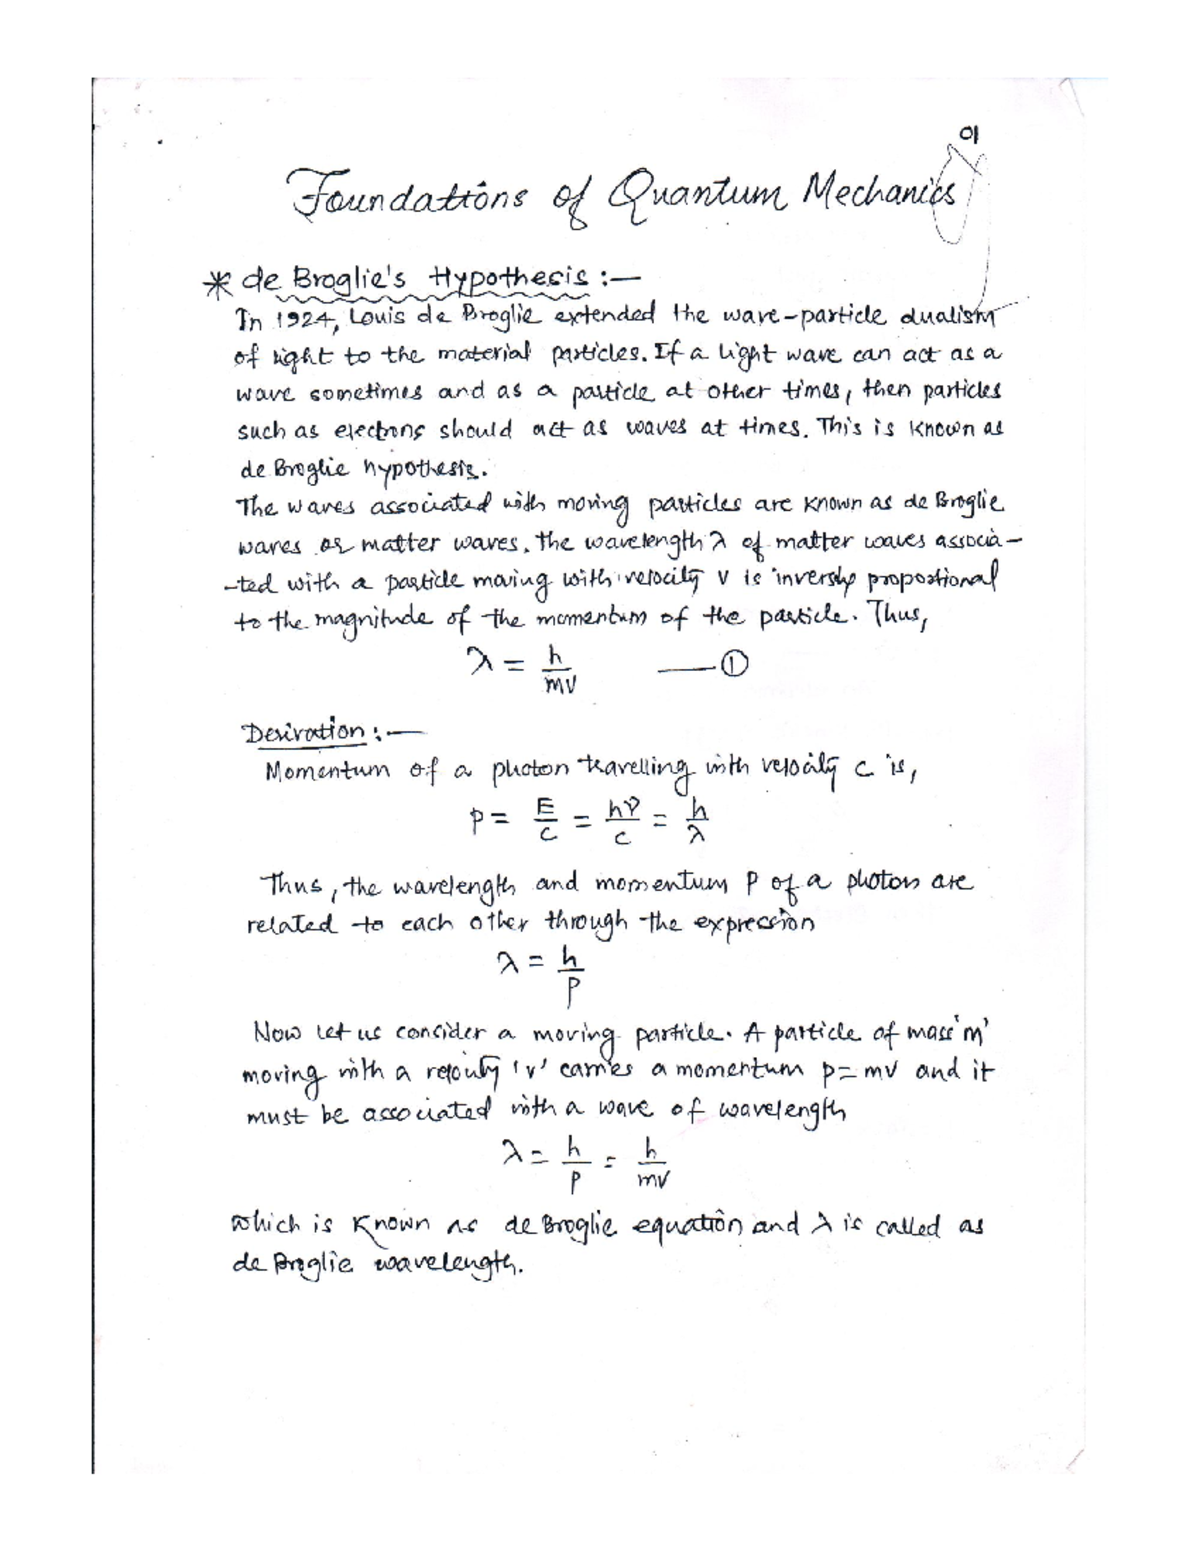 01
Foundations of Quantum Mechanics
* de Broglie's Hypothesis :—
In 1924, Louis de Broglie extended the wave-particle dualism
of light to the material particles. If a light wave can act as a
wave sometimes and as a particle at other times, then particles
such as electrons should act as waves at times. This is known as
de Broglie hypothesis.
The waves associated with moving particles are known as de Broglie
waves or matter waves. The wavelength λ of matter waves associa-
-ted with a particle moving with velocity v is inversly proportional
to the magnitude of the momentum of the particle. Thus,
λ = h/mv —— ①
Derivation :—
Momentum of a photon travelling with velocity c is,
p = E/c = hν/c = h/λ
Thus, the wavelength and momentum P of a photon are
related to each other through the expression
λ = h/p
Now let us consider a moving particle. A particle of mass 'm'
moving with a velocity 'v' carries a momentum p = mv and it
must be associated with a wave of wavelength
λ = h/p = h/mv
which is known as de Broglie equation and λ is called as
de Broglie wavelength.